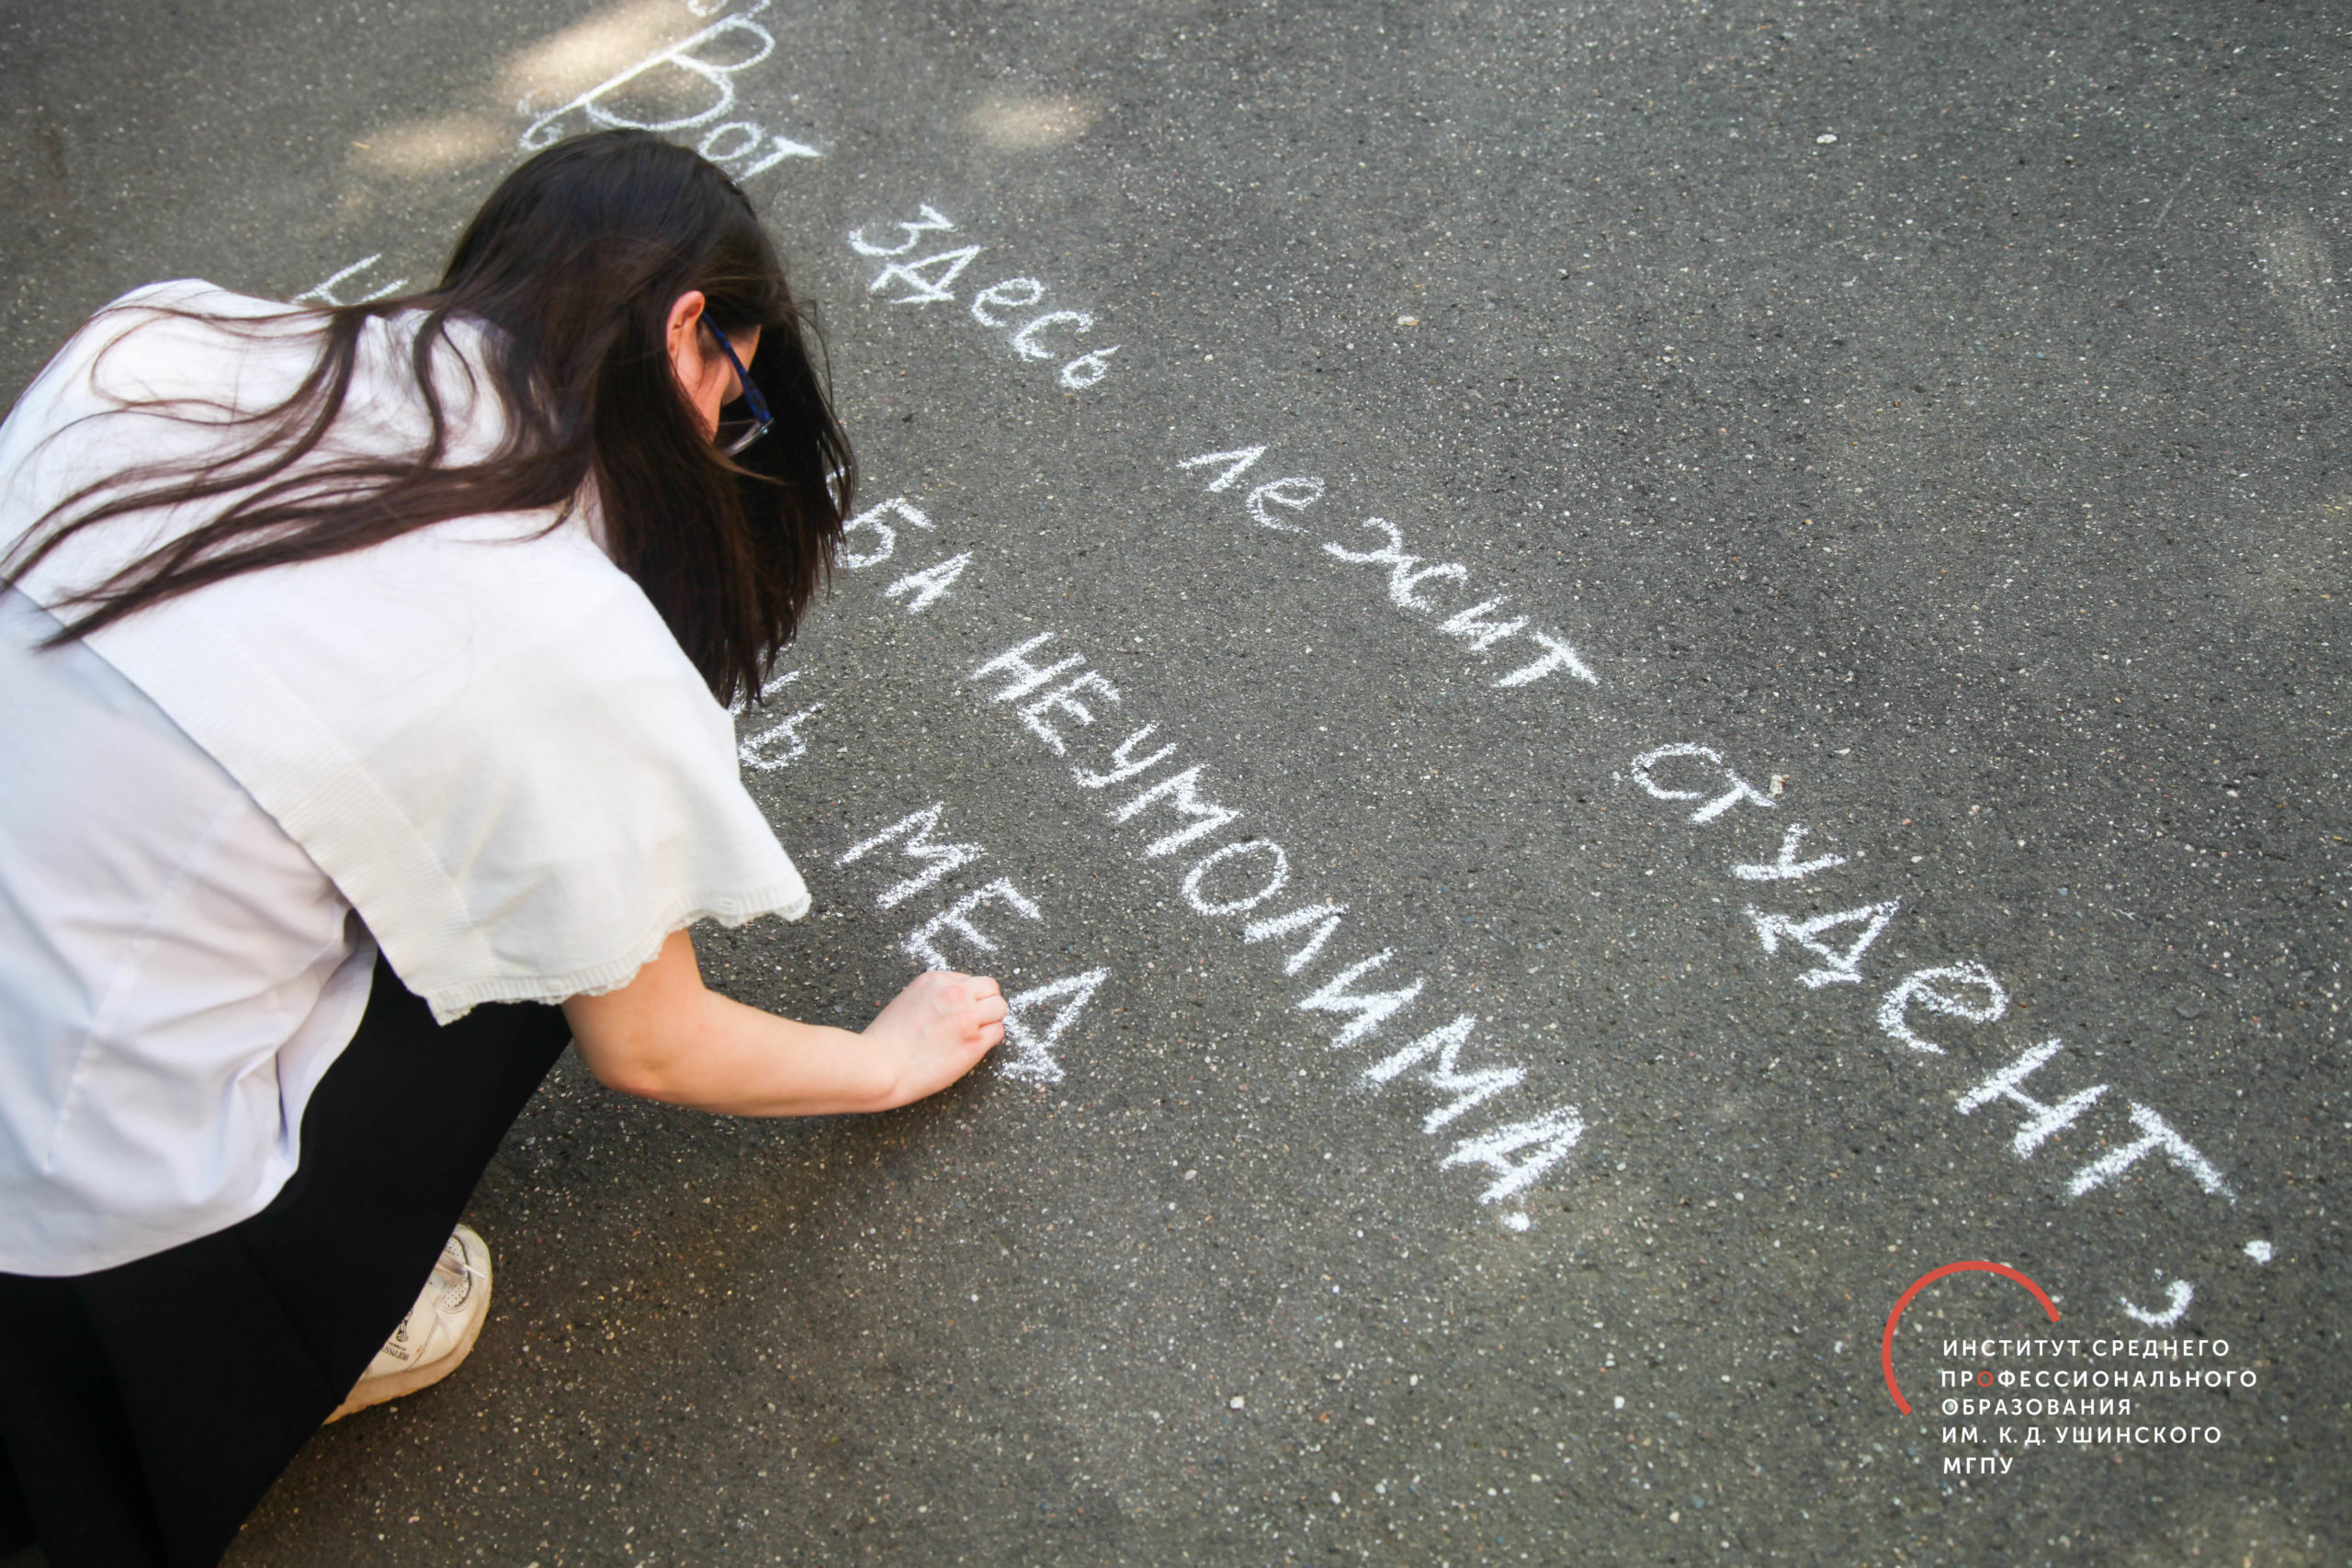 Вот здесь лежит студент.
НЕУМОЛИМА.
МЕД
ИНСТИТУТ СРЕДНЕГО
ПРОФЕССИОНАЛЬНОГО
ОБРАЗОВАНИЯ
ИМ. К. Д. УШИНСКОГО
МГПУ